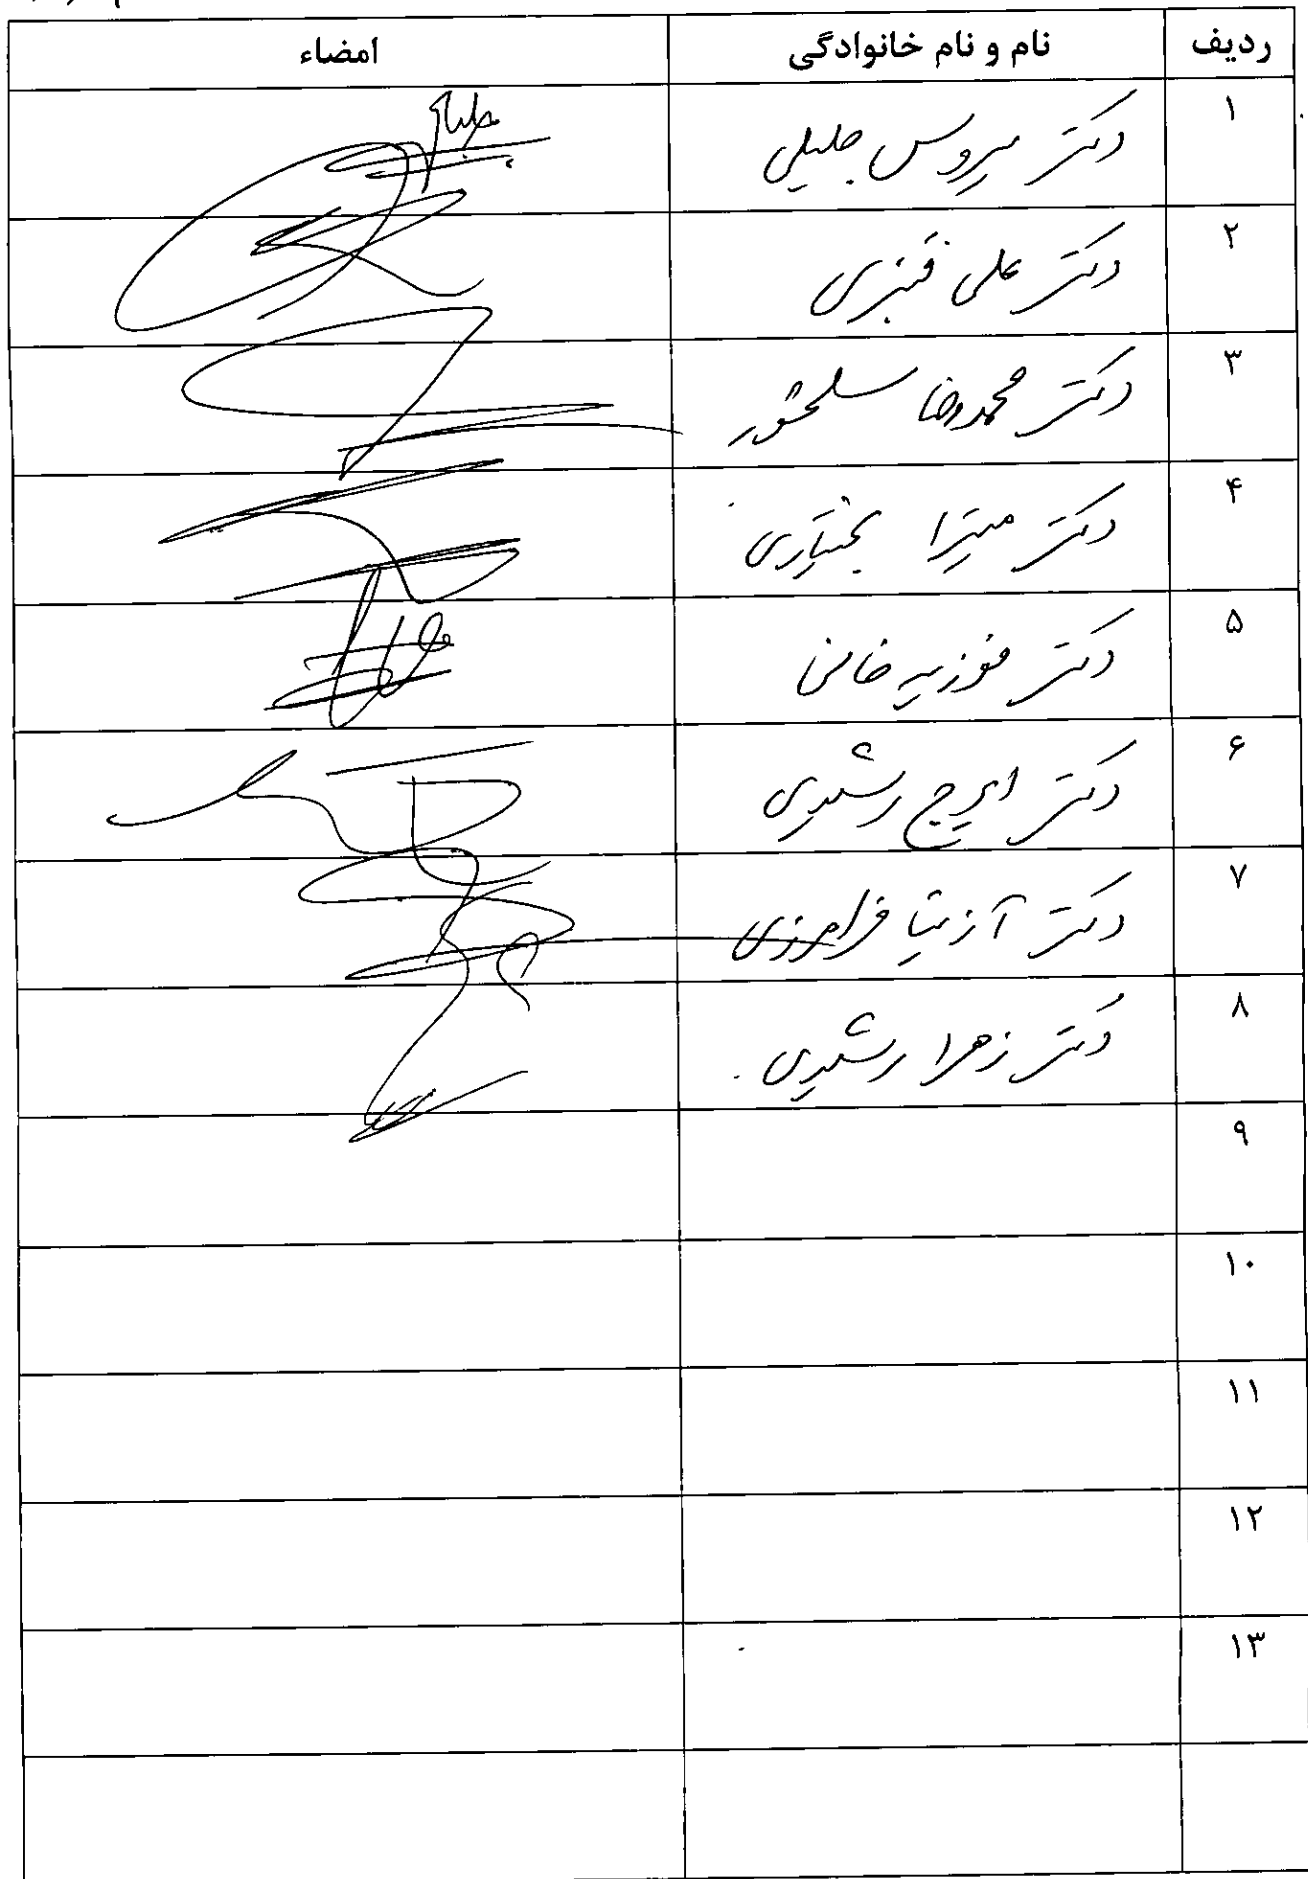 ردیف نام و نام خانوادگی امضاء
۱ دکتر سیروس جلیلی
۲ دکتر علی قنبری
۳ دکتر محمدرضا سلحشور
۴ دکتر میترا بختیاری
۵ دکتر فوزیه خامنی
۶ دکتر ایرج رشیدی
۷ دکتر آزیتا فرامرزی
۸ دکتر زهرا رشیدی
۹
۱۰
۱۱
۱۲
۱۳